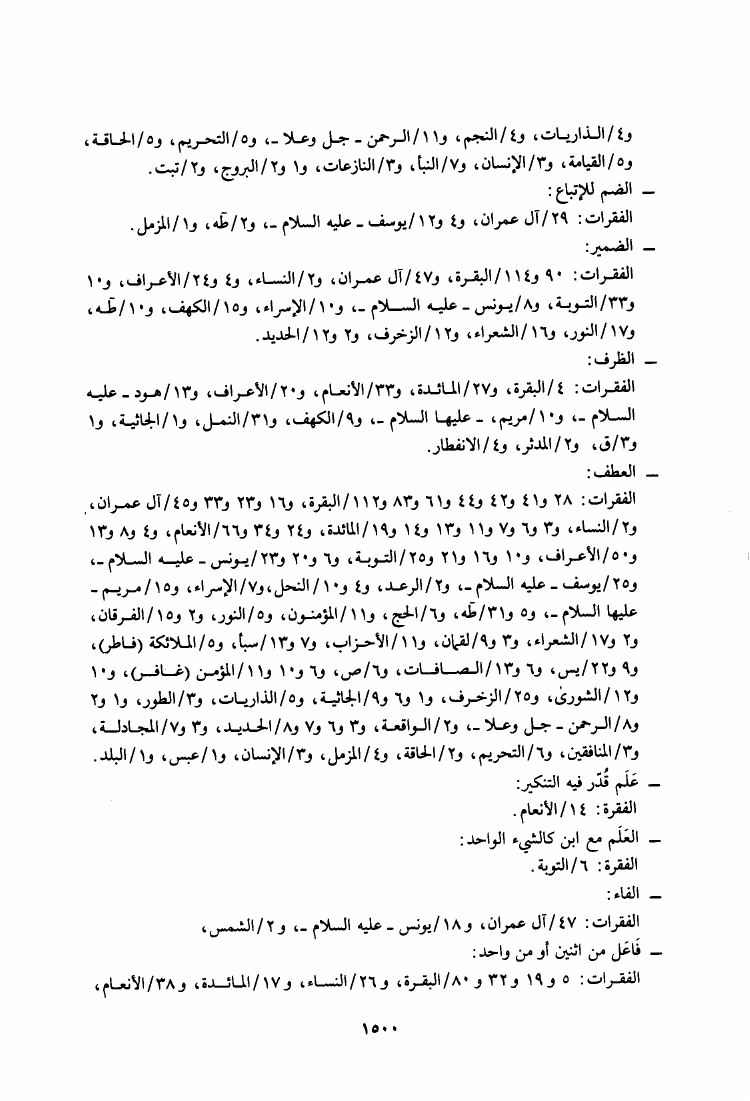 و٤/الذاريات، و٤/النجم، و١١/الرحمن - جل وعلا -، و٥/التحريم، و٥/الحاقة،
و٥/القيامة، و٣/الإنسان، و٧/النبأ، و٣/النازعات، و١ و٢/البروج، و٢/تبت.
– الضم للإتباع:
الفقرات: ٢٩/آل عمران، و٤ و١٢/يوسف - عليه السلام -، و٢/طه، و١/المزمل.
– الضمير:
الفقرات: ٩٠ و١١٤/البقرة، و٤٧/آل عمران، و٢/النساء، و٤ و٢٤/الأعراف، و١٠
و٣٣/التوبة، و٨/يونس - عليه السلام -، و١٠/الإسراء، و١٥/الكهف، و١٠/طه،
و١٧/النور، و١٦/الشعراء، و١٢/الزخرف، و٢ و١٢/الحديد.
– الظرف:
الفقرات: ٤/البقرة، و٢٧/المائدة، و٣٣/الأنعام، و٢٠/الأعراف، و١٣/هود - عليه
السلام -، و١٠/مريم، - عليها السلام -، و٩/الكهف، و٣١/النمل، و١/الجاثية، و١
و٣/ق، و٢/المدثر، و٤/الانفطار.
– العطف:
الفقرات: ٢٨ و٤١ و٤٢ و٤٤ و٦١ و٨٣ و١١٢/البقرة، و١٦ و٢٣ و٣٣ و٤٥/آل عمران،
و٢/النساء، و٣ و٦ و٧ و١١ و١٣ و١٤ و١٩/المائدة، و٢٤ و٣٤ و٦٦/الأنعام، و٤ و٨ و١٣
و٥٠/الأعراف، و١٠ و١٦ و٢١ و٢٥/التوبة، و٦ و٢٠ و٢٣/يونس - عليه السلام -،
و٢٥/يوسف - عليه السلام -، و٢/الرعد، و٤ و١٠/النحل، و٧/الإسراء، و١٥/مريم -
عليها السلام -، و٥ و٣١/طه، و٦/الحج، و١١/المؤمنون، و٥/النور، و٢ و١٥/الفرقان،
و٢ و١٧/الشعراء، و٣ و٩/لقمان، و١١/الأحزاب، و٧ و١٣/سبأ، و٥/الملائكة (فاطر)،
و٩ و٢٢/يس، و٦ و١٣/الصافات، و٦/ص، و٦ و١٠ و١١/المؤمن (غافر)، و١٠
و١٢/الشورى، و٢٥/الزخرف، و١ و٦ و٩/الجاثية، و٥/الذاريات، و٣/الطور، و١ و٢
و٨/الرحمن - جل وعلا -، و٢/الواقعة، و٣ و٦ و٧ و٨/الحديد، و٣ و٧/المجادلة،
و٣/المنافقين، و٦/التحريم، و٢/الحاقة، و٤/المزمل، و٣/الإنسان، و١/عبس، و١/البلد.
– عَلَم قُدّر فيه التنكير:
الفقرة: ١٤/الأنعام.
– العَلَم مع ابن كالشيء الواحد:
الفقرة: ٦/التوبة.
– الفاء:
الفقرات: ٤٧/آل عمران، و١٨/يونس - عليه السلام -، و٢/الشمس،
– فَاعَل من اثنين أو من واحد:
الفقرات: ٥ و١٩ و٣٢ و٨٠/البقرة، و٢٦/النساء، و١٧/المائدة، و٣٨/الأنعام،
١٥٠٠